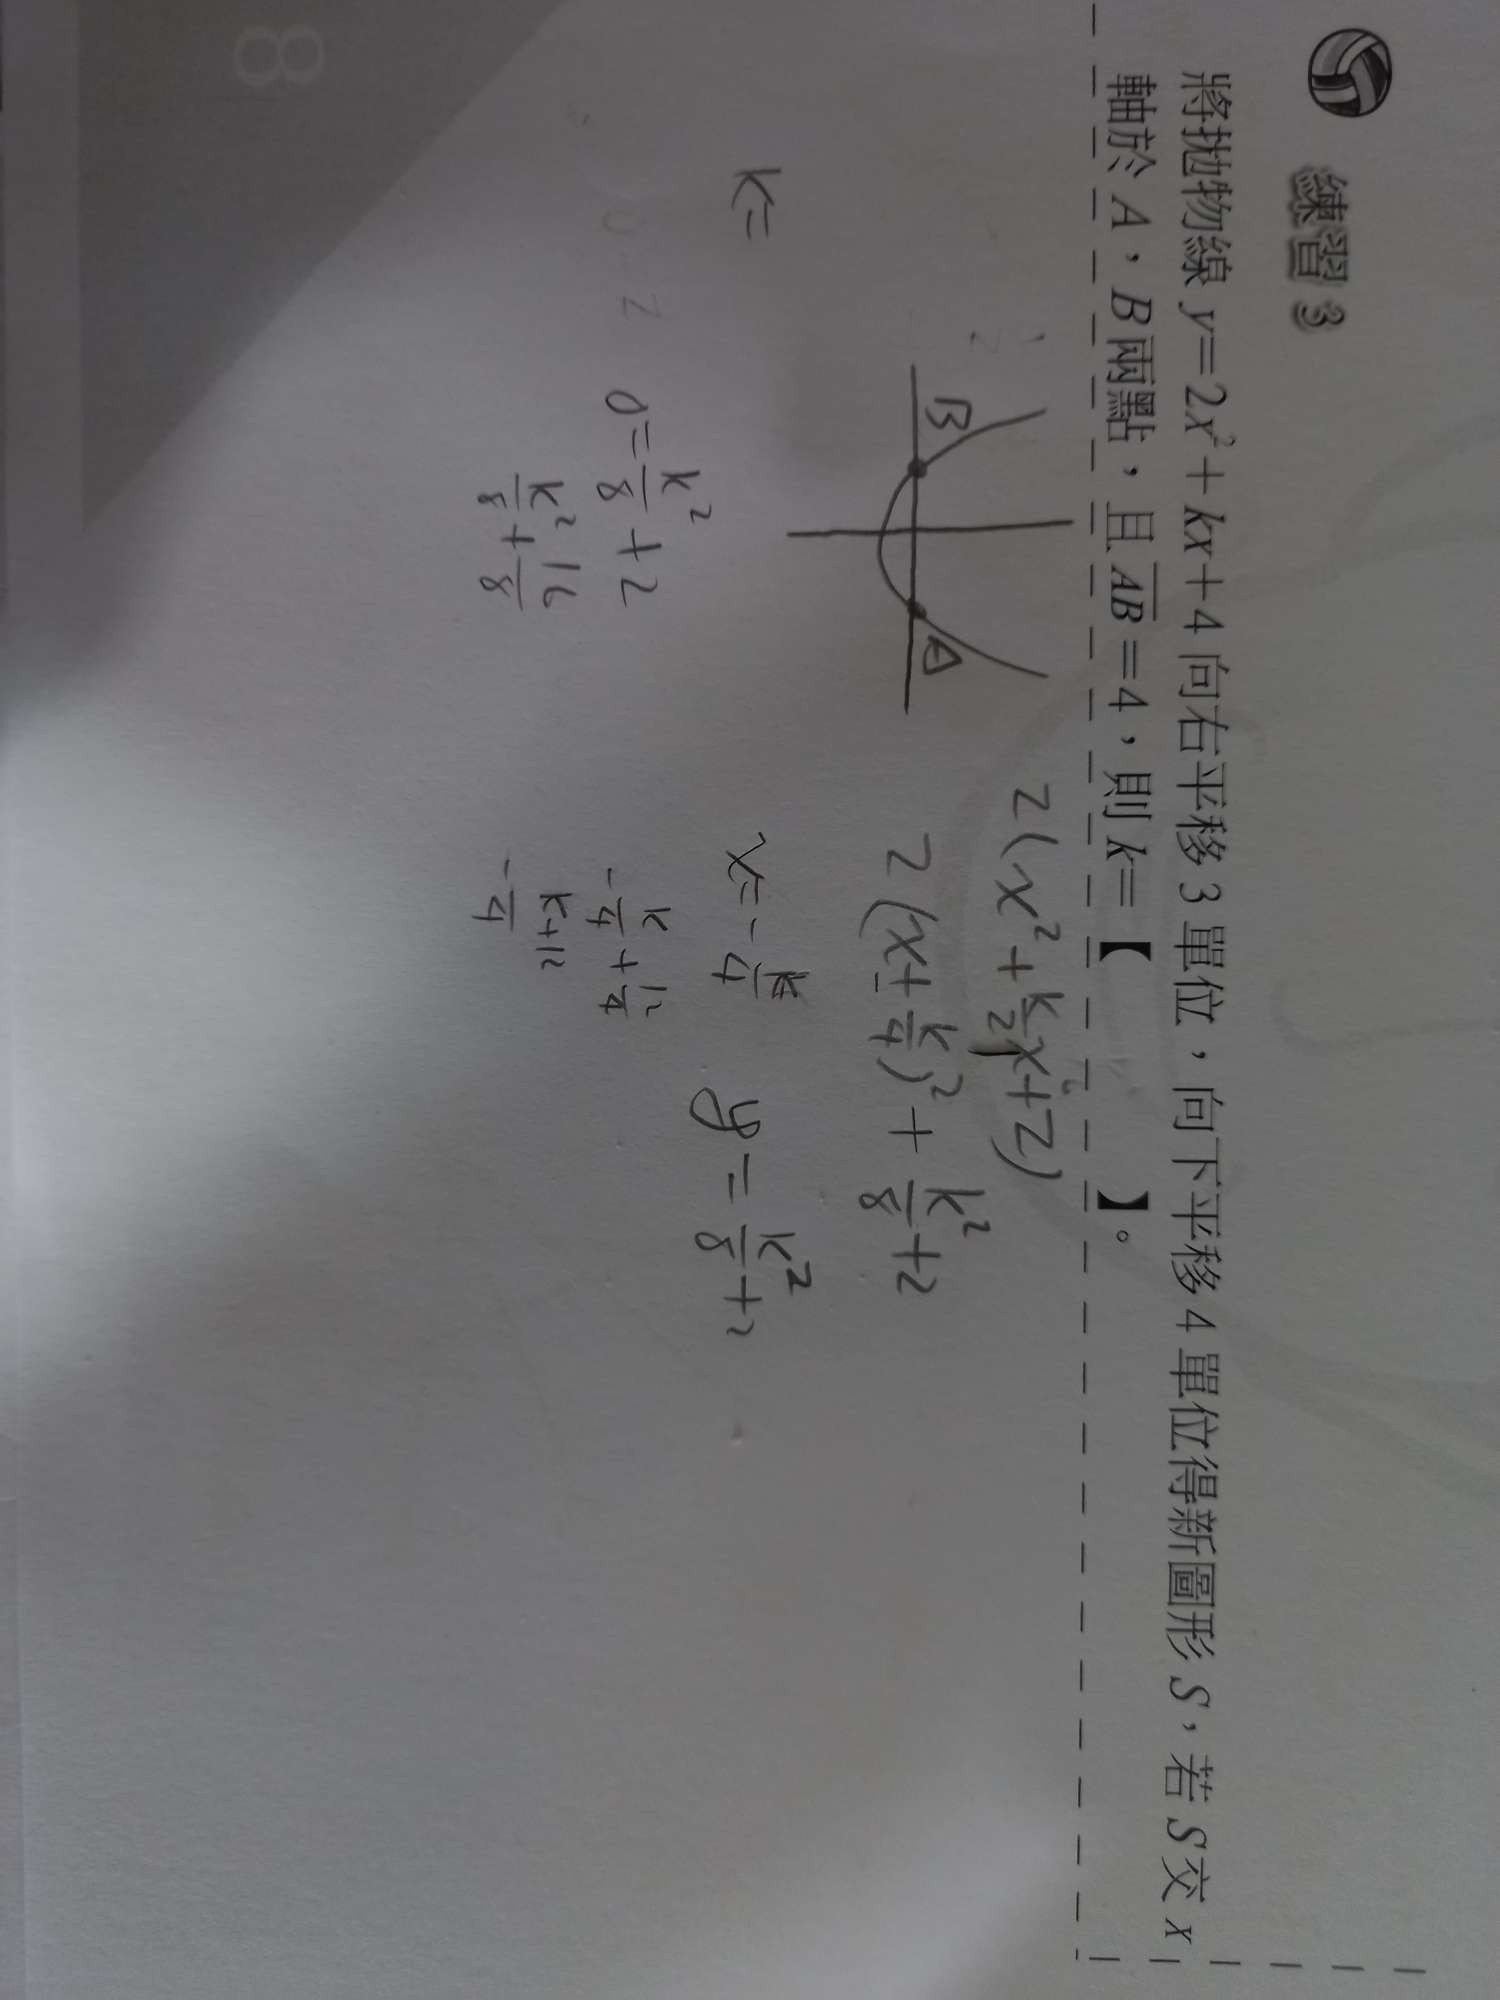 練習 3
將拋物線 y=2x²+kx+4 向右平移 3 單位，向下平移 4 單位得新圖形 S，若 S 交 x
軸於 A，B 兩點，且 \overline{AB}=4，則 k=【 】。
2(x²+\frac{k}{2}x+2)
B A
2(x+\frac{k}{4})²+\frac{k²}{8}+2
k=
x=-\frac{k}{4} y=\frac{k²}{8}+2
0=\frac{k²}{8}+2
-\frac{k}{4}+\frac{12}{4}
\frac{k²}{8}+\frac{16}{8}
-\frac{k+12}{4}
8